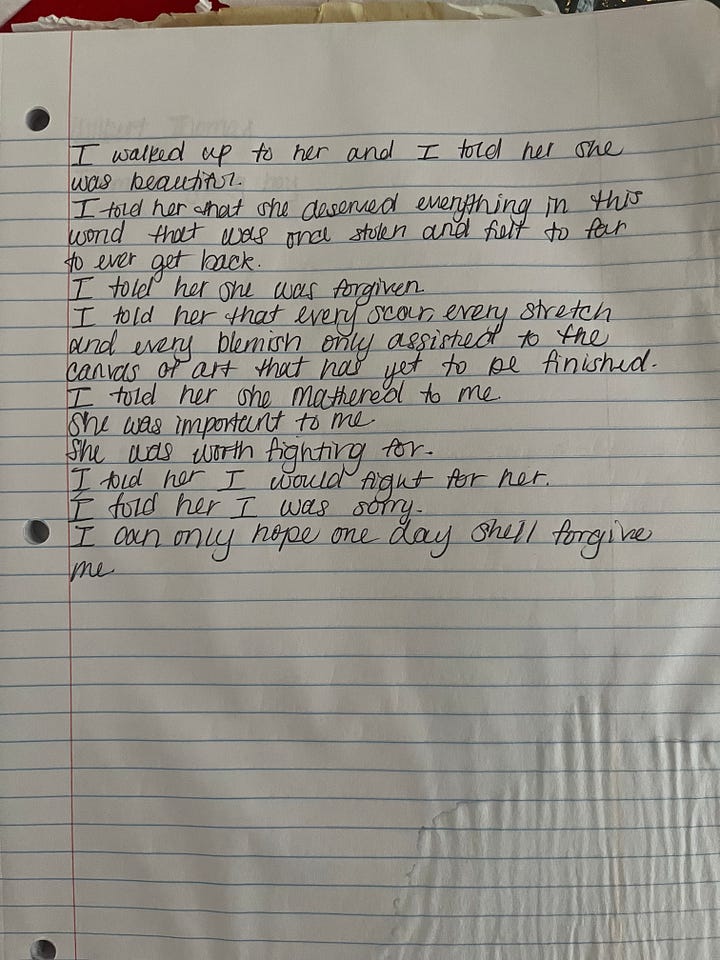 I walked up to her and I told her she
was beautiful.
I told her that she deserved everything in this
world that was once stolen and felt to far
to ever get back.
I told her she was forgiven
I told her that every scar, every stretch
and every blemish only assisted to the
canvas of art that has yet to be finished.
I told her she mathered to me.
She was important to me.
She was worth fighting for.
I told her I would fight for her.
I told her I was sorry.
I can only hope one day shell forgive
me